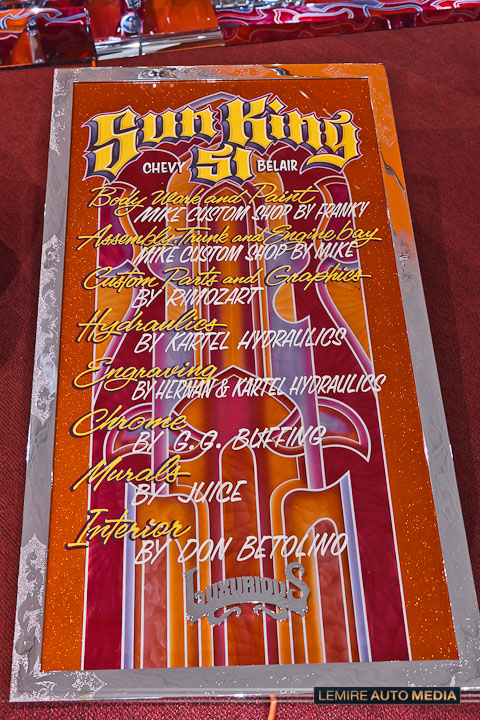 Sun King
CHEVY 51 BELAIR
Body Work and Paint
MIKE CUSTOM SHOP BY FRANKY
Assembly, Trunk and Engine bay
MIKE CUSTOM SHOP BY MIKE
Custom Parts and Graphics
BY RYMOZART
Hydraulics
BY KARTEL HYDRAULICS
Engraving
BY HERNAN & KARTEL HYDRAULICS
Chrome
BY G.G. BUFFING
Murals
BY JUICE
Interior
BY DON BETOLINO
LUXURIOUS
LEMIRE AUTO MEDIA